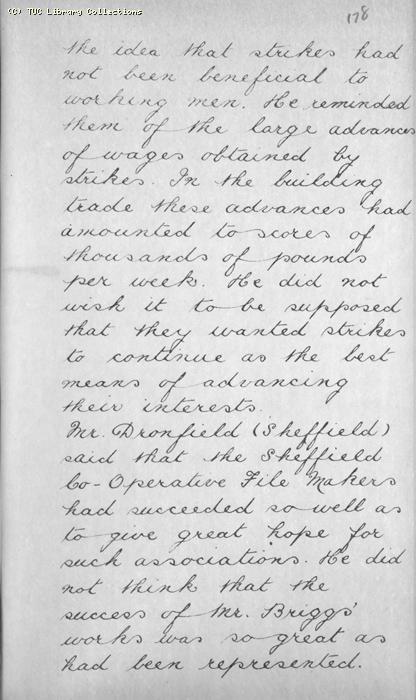 (C) TUC Library Collections
178
the idea that strikes had
not been beneficial to
working men. He reminded
them of the large advances
of wages obtained by
strikes. In the building
trade these advances had
amounted to scores of
thousands of pounds
per week. He did not
wish it to be supposed
that they wanted strikes
to continue as the best
means of advancing
their interests.
Mr. Dronfield (Sheffield)
said that the Sheffield
Co-Operative File Makers
had succeeded so well as
to give great hope for
such associations. He did
not think that the
success of Mr. Briggs'
works was so great as
had been represented.